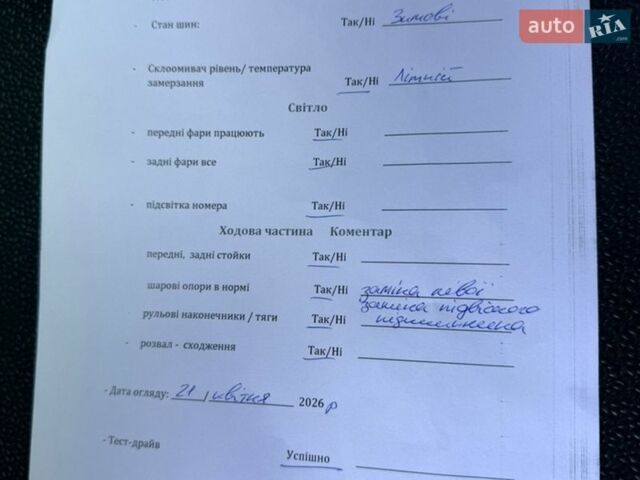 auto RIA.com
- Стан шин: Так/Ні Зимові
- Склоомивач рівень/ температура замерзання Так/Ні Літній
Світло
- передні фари працюють Так/Ні
- задні фари все Так/Ні
- підсвітка номера Так/Ні
Ходова частина Коментар
передні, задні стойки Так/Ні
шарові опори в нормі Так/Ні заміна левої
- рульові наконечники / тяги Так/Ні заміна підвісного підшипника
- розвал - сходження Так/Ні
- Дата огляду: 21 / квітня 2026 р
- Тест-драйв Успішно